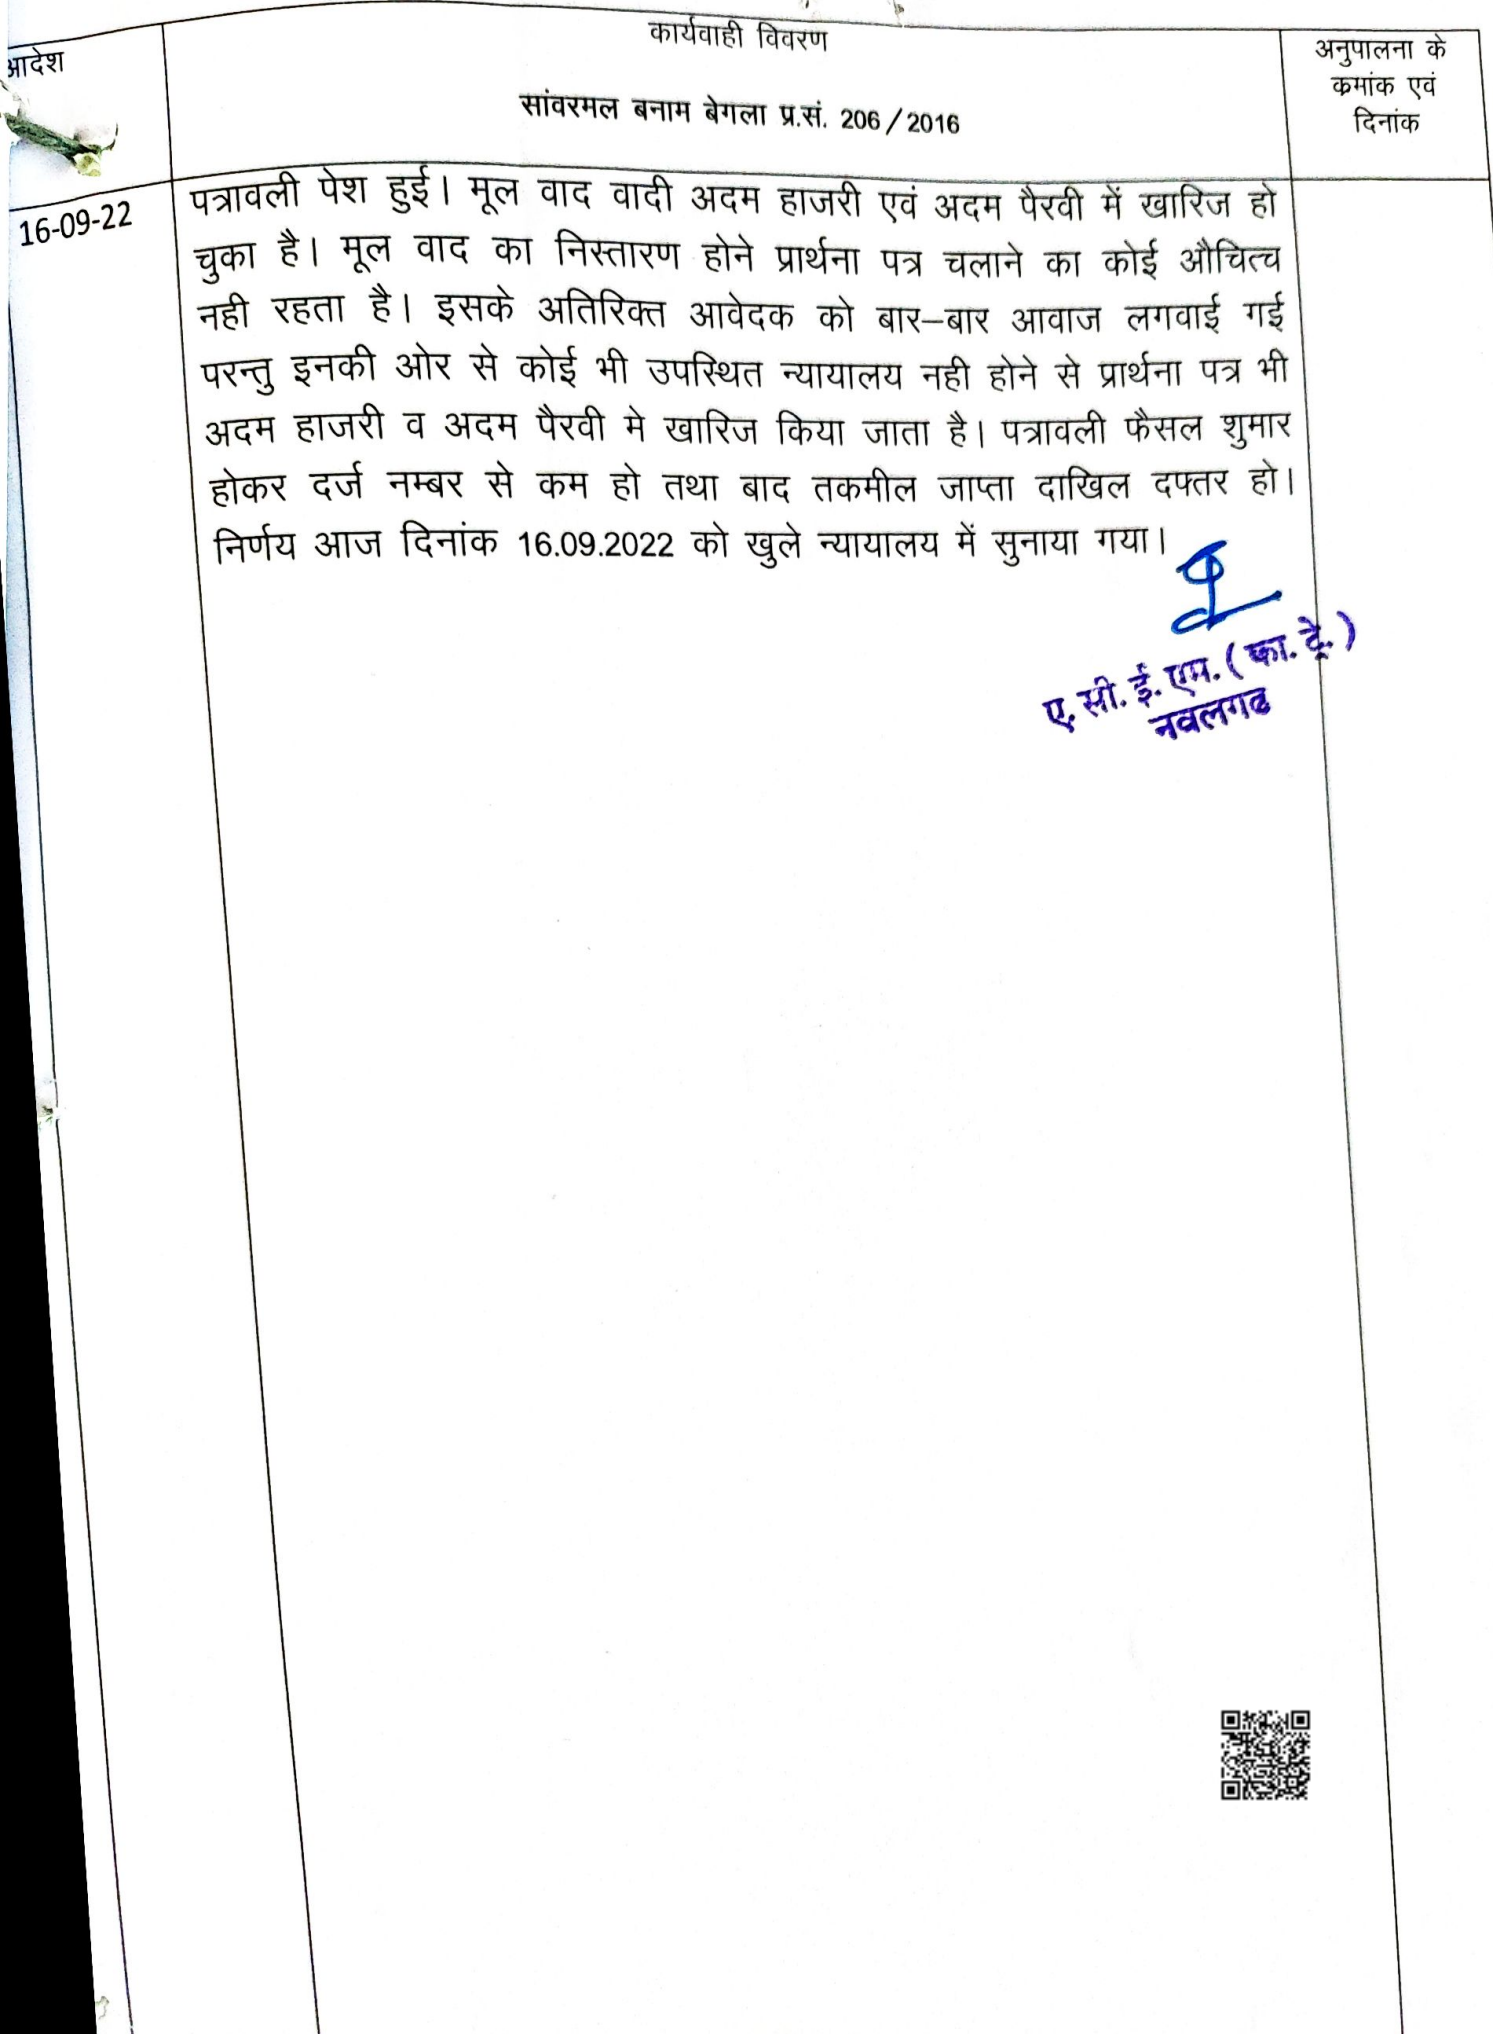 आदेश
कार्यवाही विवरण
सांवरमल बनाम बेगला प्र.सं. 206/2016
अनुपालना के
क्रमांक एवं
दिनांक
16-09-22
पत्रावली पेश हुई। मूल वाद वादी अदम हाजरी एवं अदम पैरवी में खारिज हो
चुका है। मूल वाद का निस्तारण होने प्रार्थना पत्र चलाने का कोई औचित्च
नही रहता है। इसके अतिरिक्त आवेदक को बार–बार आवाज लगवाई गई
परन्तु इनकी ओर से कोई भी उपस्थित न्यायालय नही होने से प्रार्थना पत्र भी
अदम हाजरी व अदम पैरवी मे खारिज किया जाता है। पत्रावली फैसल शुमार
होकर दर्ज नम्बर से कम हो तथा बाद तकमील जाप्ता दाखिल दफ्तर हो।
निर्णय आज दिनांक 16.09.2022 को खुले न्यायालय में सुनाया गया।
ए. सी. ई. एम. (फा. ट्रे.)
नवलगढ